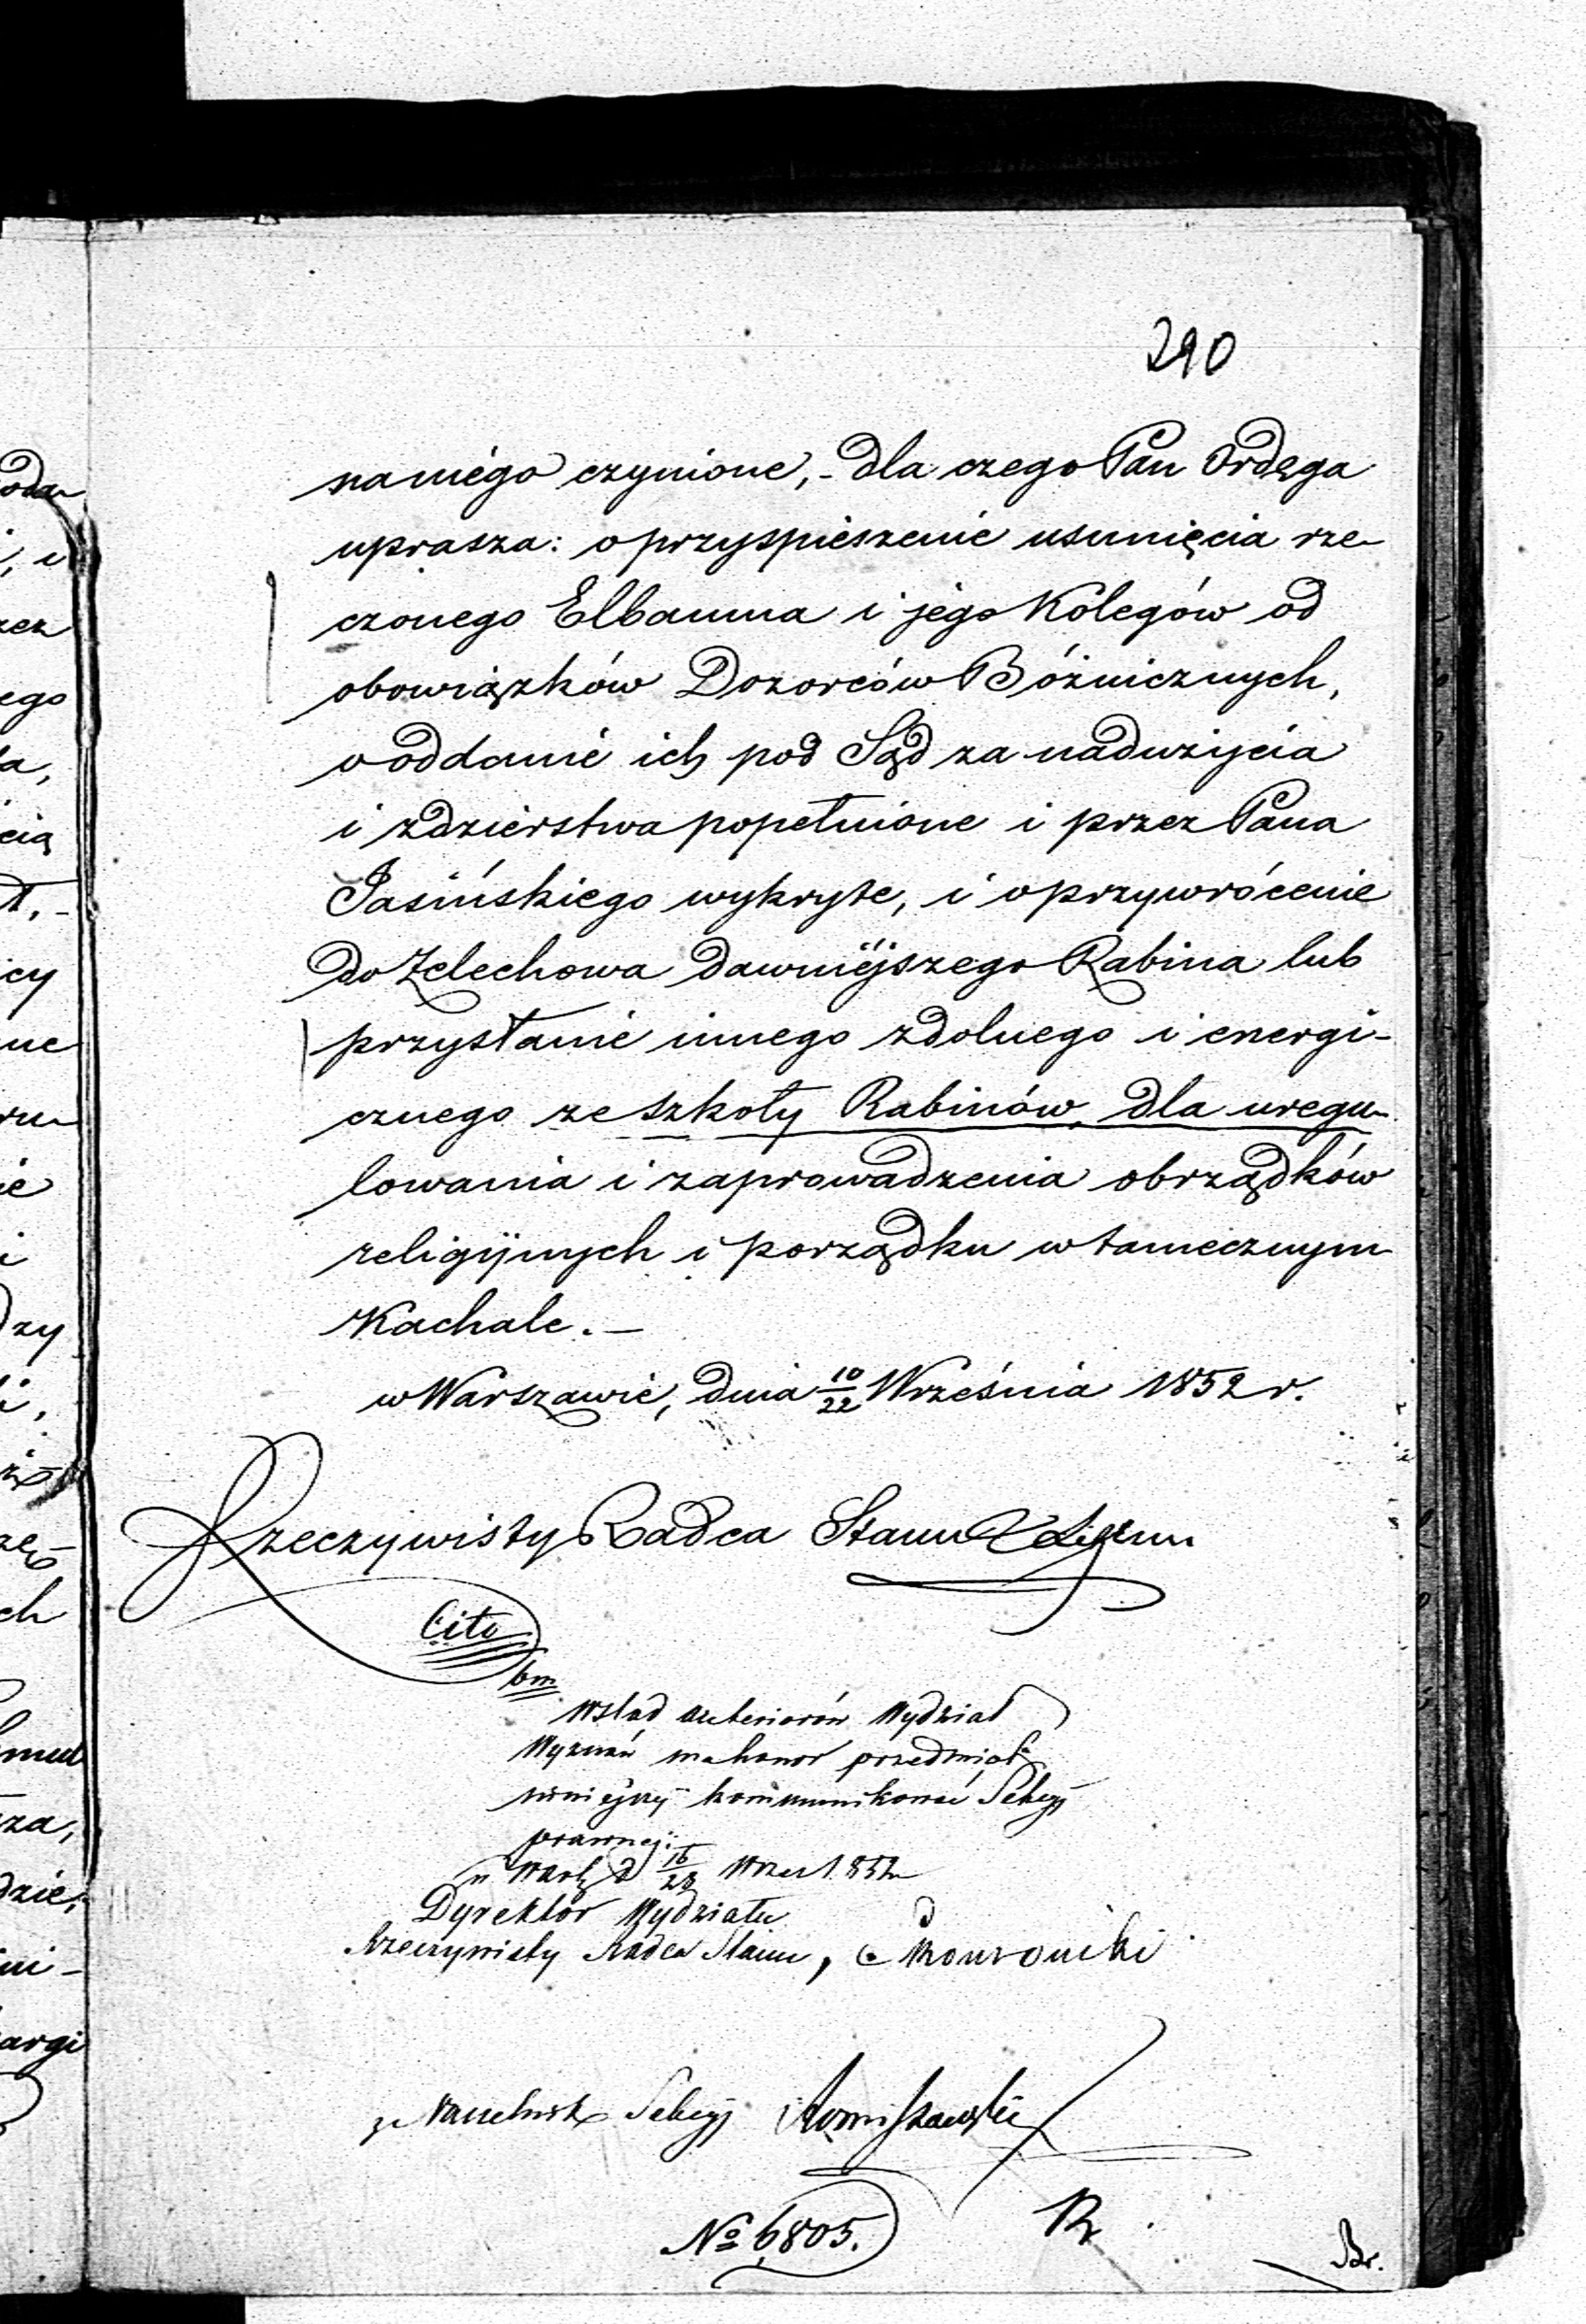 290
na niego czynione, - dla czego Pan Ordęga
uprasza: o przyspieszenie usunięcia rze-
czonego Elbauma i jego Kolegów od
obowiązków Dozorców Bóżnicznych,
o oddanie ich pod Sąd za nadużycia
i zdzierstwa popełnione i przez Pana
Jasińskiego wykryte, i o przywrócenie
do Żelechowa dawniéjszego Rabina lub
przysłanie innego zdolnego i energi-
cznego ze szkoły Rabinów, dla uregu-
lowania i zaprowadzenia obrządków
religijnych i porządku w tamecznym
Kachale. -
w Warszawie, dnia 10/22 Września 1852 r.
Rzeczywisty Radca Stanu
Cito
bm
W ślad Wydział
Wyznań ma honor przedmiot
niniejszy kommunikować Sekcyj
prawnej.
d 16/28 Wrześ 1852
Dyrektor Wydziału
Rzeczywisty Radca Stanu,
Naczelnik Sekcyj
№ 6805.
Br.